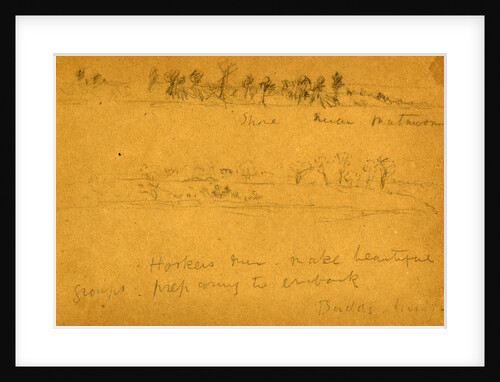 Shore near Matawom
Hookers men make beautiful
groups. preparing to embark
Budds